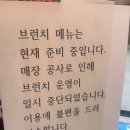 브런치 메뉴는
현재 준비 중입니다.
매장 공사로 인해
브런치 운영이
일시 중단되었습니다.
이용에 불편을 드려
죄송합니다.